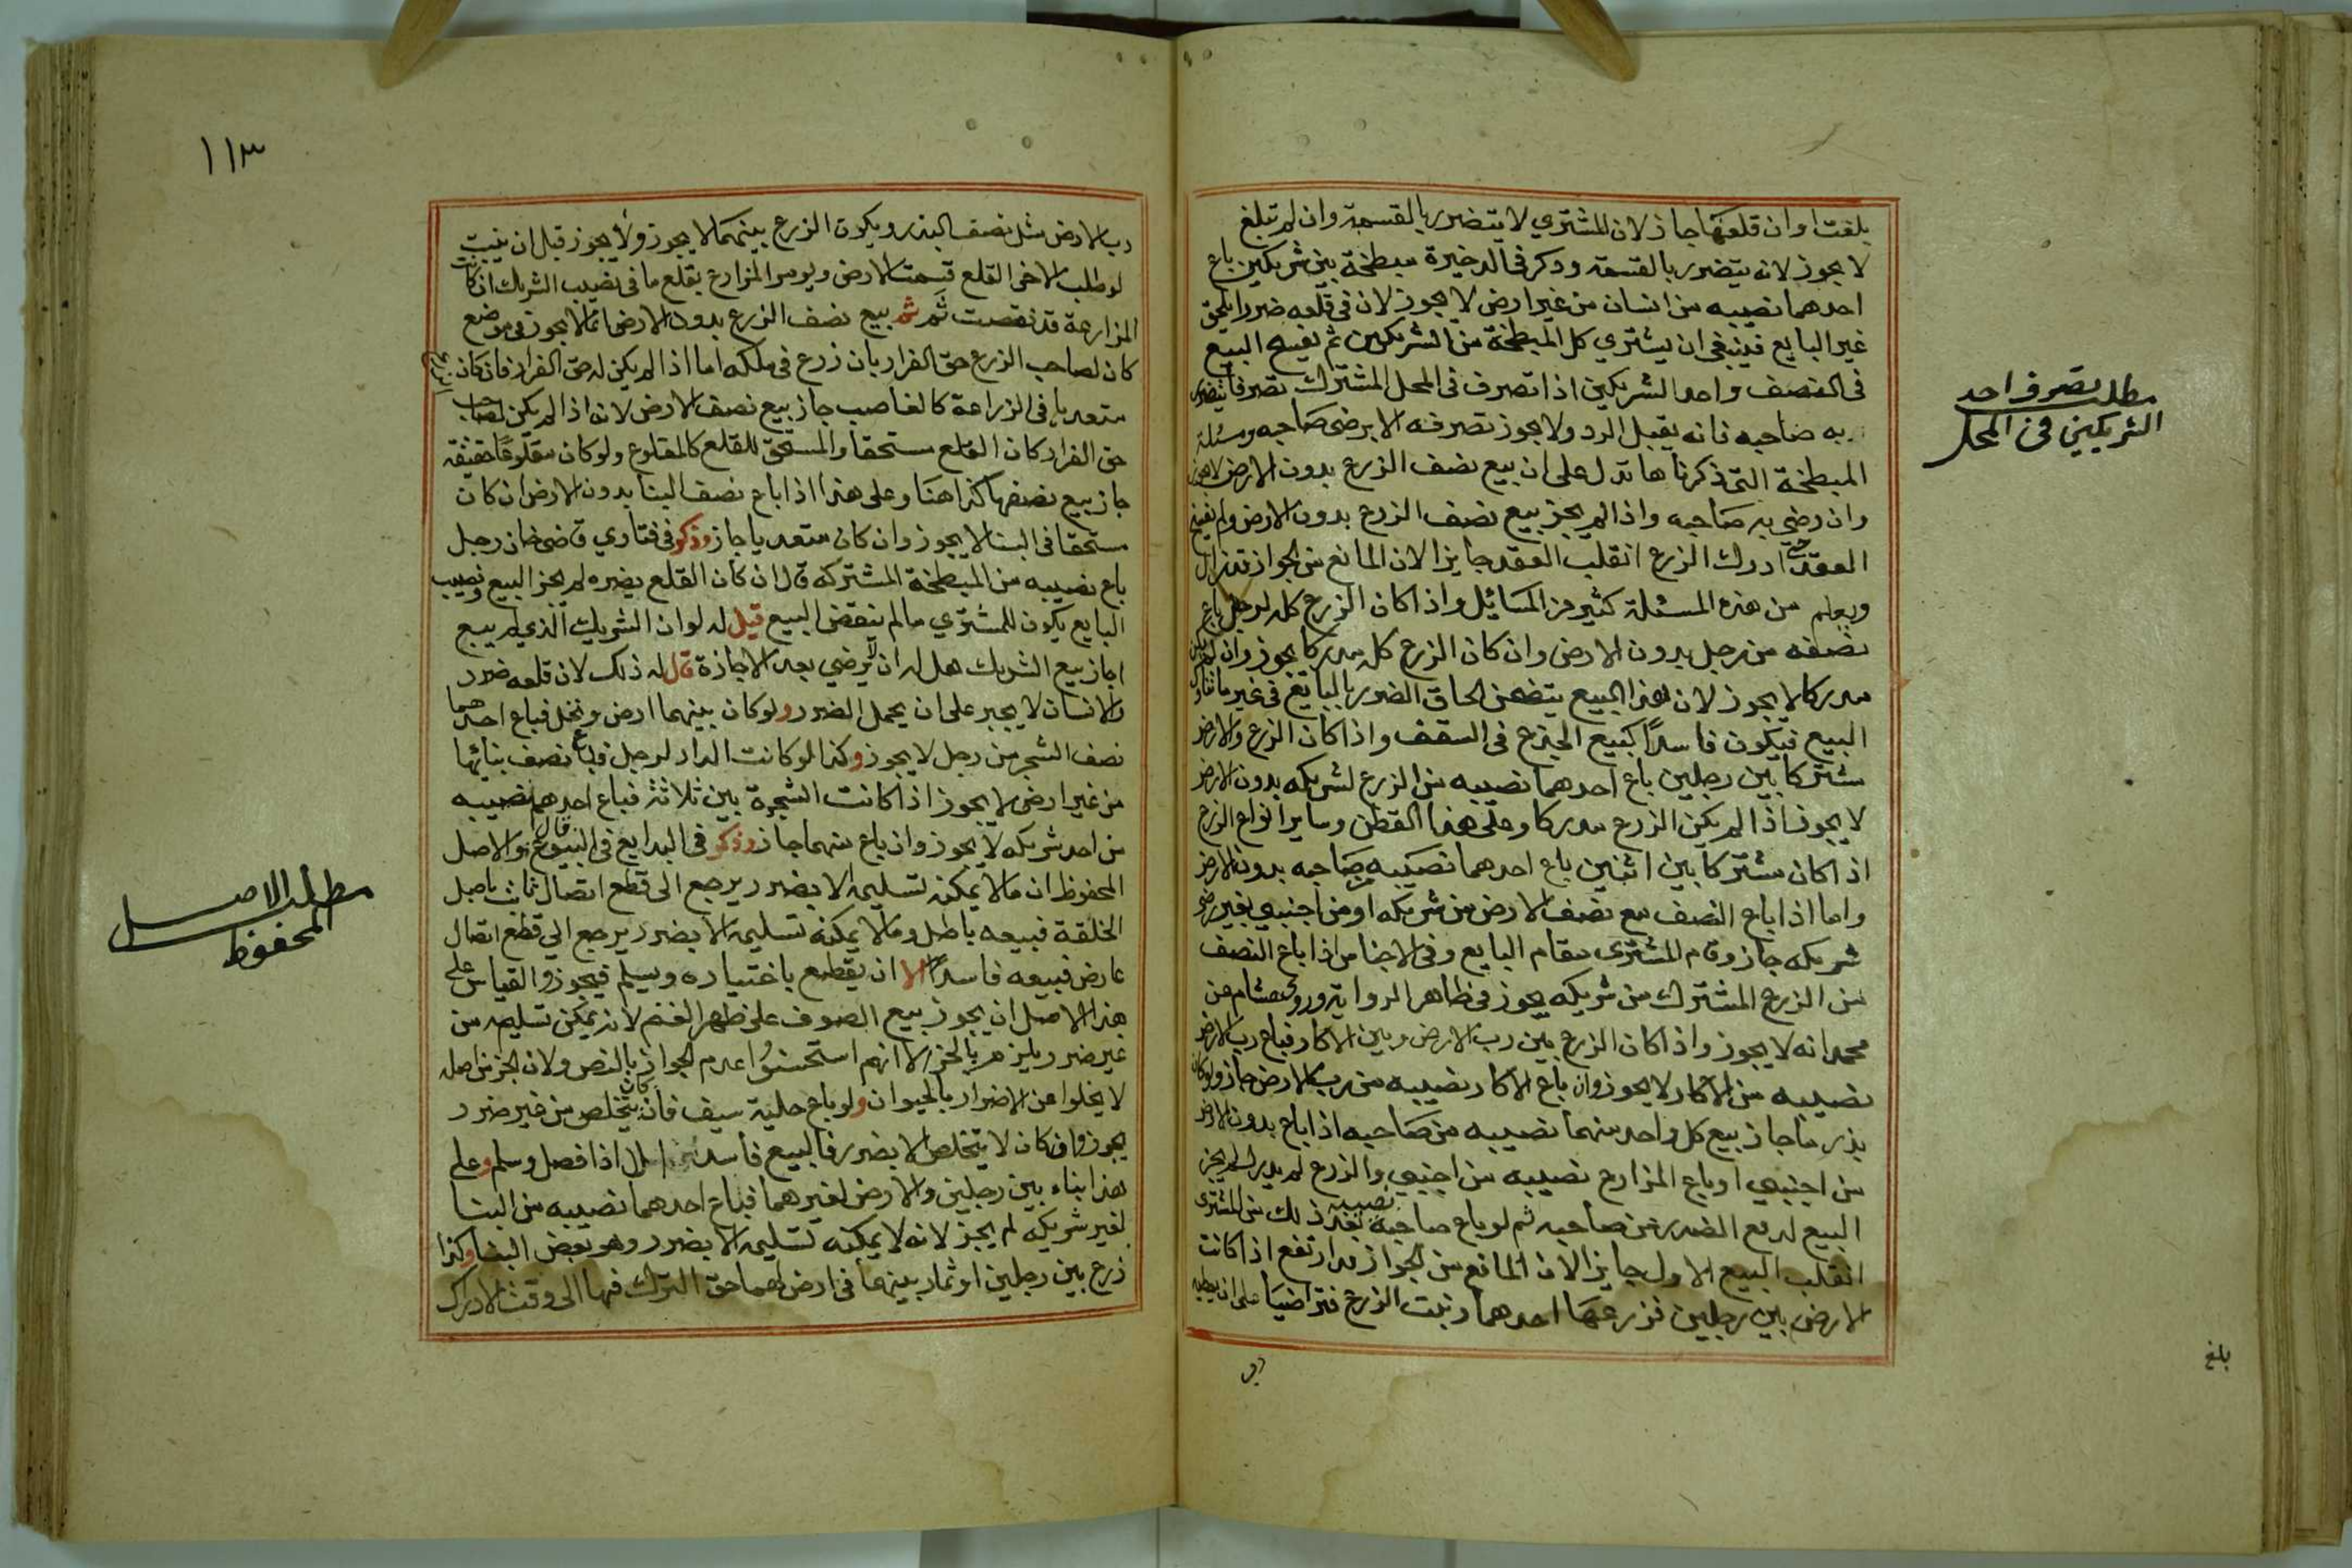 بلغت او ان قلعها جاز لان المشتري لا يتضرر بالقسمة وان لم تبلغ
لا يجوز لانه يتضرر بالقسمة وذكر في الذخيرة مبطخة بين شريكين باع
احدهما نصيبه من انسان من غير ارض لا يجوز لان في قلعه ضررا يلحق
غير البايع فينبغي ان يشتري كل المبطخة من الشريكين ثم يفسخ البيع
في النصف واحد الشريكين اذا تصرف في المحل المشترك تصرفا يتضرر
به صاحبه فانه يقبل الرد ولا يجوز تصرفه الا برضى صاحبه ومسئلة
المبطخة التي ذكرناها تدل على ان بيع نصف الزرع بدون الارض لا يجوز
وان رضي به صاحبه واذا لم يجز بيع نصف الزرع بدون الارض ولم يفسخ
العقد حتى ادرك الزرع انقلب العقد جايزا لان المانع من الجواز قد زال
ويعلم من هذه المسئلة كثير من المسايل واذا كان الزرع كله لرجل باع
نصفه من رجل بدون الارض وان كان الزرع كله مدركا يجوز وان لم يكن
مدركا لا يجوز لان هذا البيع يتضمن الحاق الضرر بالبايع في غير ما تناوله
البيع فيكون فاسدا كبيع الجذع في السقف واذا كان الزرع والارض
مشتركا بين رجلين باع احدهما نصيبه من الزرع لشريكه بدون الارض
لا يجوز اذا لم يكن الزرع مدركا وعلى هذا القطن وساير انواع الزرع
اذا كان مشتركا بين اثنين باع احدهما نصيبه من صاحبه بدون الارض
واما اذا باع النصف مع نصف الارض من شريكه او من اجنبي بغير رضى
شريكه جاز وقام المشتري مقام البايع وفي الاجناس اذا باع النصف
من الزرع المشترك من شريكه يجوز في ظاهر الرواية وروى هشام عن
محمد انه لا يجوز واذا كان الزرع بين رب الارض وبين الاكار فباع رب الارض
نصيبه من الاكار لا يجوز وان باع الاكار نصيبه من رب الارض جاز ولو كان
بذرهما جاز بيع كل واحد منهما نصيبه من صاحبه اذا باع بدون الارض
من اجنبي او باع المزارع نصيبه من اجنبي والزرع لم يدرك لم يجز
البيع لدفع الضرر عن صاحبه ثم لو باع صاحبه نصيبه بعد ذلك من المشتري
انقلب البيع الاول جايزا لان المانع من الجواز قد ارتفع اذا كانت
الارض بين رجلين فزرعها احدهما ونبت الزرع فتراضيا على ان يعطيه
رب
مطلب تصرف احد
الشريكين في المحل
بلغ
١١٣
رب الارض مثل نصف البذر ويكون الزرع بينهما لا يجوز ولا يجوز قبل ان ينبت
لو طلب الاخر القلع قسمت الارض ويومر المزارع بقلع ما في نصيب الشريك ان كانت
المزارعة قد نقصت ثم ثم بيع نصف الزرع بدون الارض انما لا يجوز في موضع
كان لصاحب الزرع حق القرار بان زرع في ملكه اما اذا لم يكن له حق القرار فان كان
متعديا في الزراعة كالغاصب جاز بيع نصف الارض لانه اذا لم يكن لصاحب
حق القرار كان القلع مستحقا والمستحق للقلع كالمقلوع ولو كان مقلوعا حقيقة
جاز بيع نصفها كذا هنا وعلى هذا اذا باع نصف البنا بدون الارض ان كان
مستحقا في البنا لا يجوز وان كان متعديا جاز وذكر في فتاوي قاضي خان رجل
باع نصيبه من المبطخة المشتركة قال ان كان القلع يضره لم يجز البيع ونصيب
البايع يكون للمشتري ما لم ينقض البيع قيل له لو ان الشريك الذي لم يبع
اجاز بيع الشريك هل له ان لا يرضي بعد الاجازة قال له ذلك لان قلعه ضرر
والانسان لا يجبر على ان يحمل الضرر ولو كان بينهما ارض ونخل فباع احدهما
نصف الشجر من رجل لا يجوز وكذا لو كانت الدار لرجل فباع نصف بنائها
من غير ارض لا يجوز اذا كانت الشجرة بين ثلاثة فباع احدهم نصيبه
من احد شريكه لا يجوز وان باع منهما جاز وذكر في البدايع في البيوع قال والاصل
المحفوظ ان ما لا يمكنه تسليمه الا بضرر يرجع الى قطع اتصال ثابت باصل
الخلقة فبيعه باطل وما لا يمكنه تسليمه الا بضرر يرجع الي قطع اتصال
عارض فبيعه فاسدا الا ان يقطع باختياره ويسلم فيجوز والقياس على
هذا الاصل ان يجوز بيع الصوف على ظهر الغنم لانه يمكن تسليمه من
غير ضرر يلزمه بالجز الا انهم استحسنوا عدم الجواز بالنص ولان الجز من اصله
لا يخلوا من الاضرار بالحيوان ولو باع حلية سيف فان كان يتخلص من غير ضرر
يجوز وان كان لا يتخلص الا بضرر فالبيع فاسد الا اذا فصل وسلم وعلى
هذا بناء بين رجلين والارض لغيرهما فباع احدهما نصيبه من البنا
لغير شريكه لم يجز لانه لا يمكنه تسليمه الا بضرر وهو نقض البنا وكذا
زرع بين رجلين او ثمار بينهما في ارض لهما حق الترك فيها الى وقت الادراك
مطلب الاصل
المحفوظ